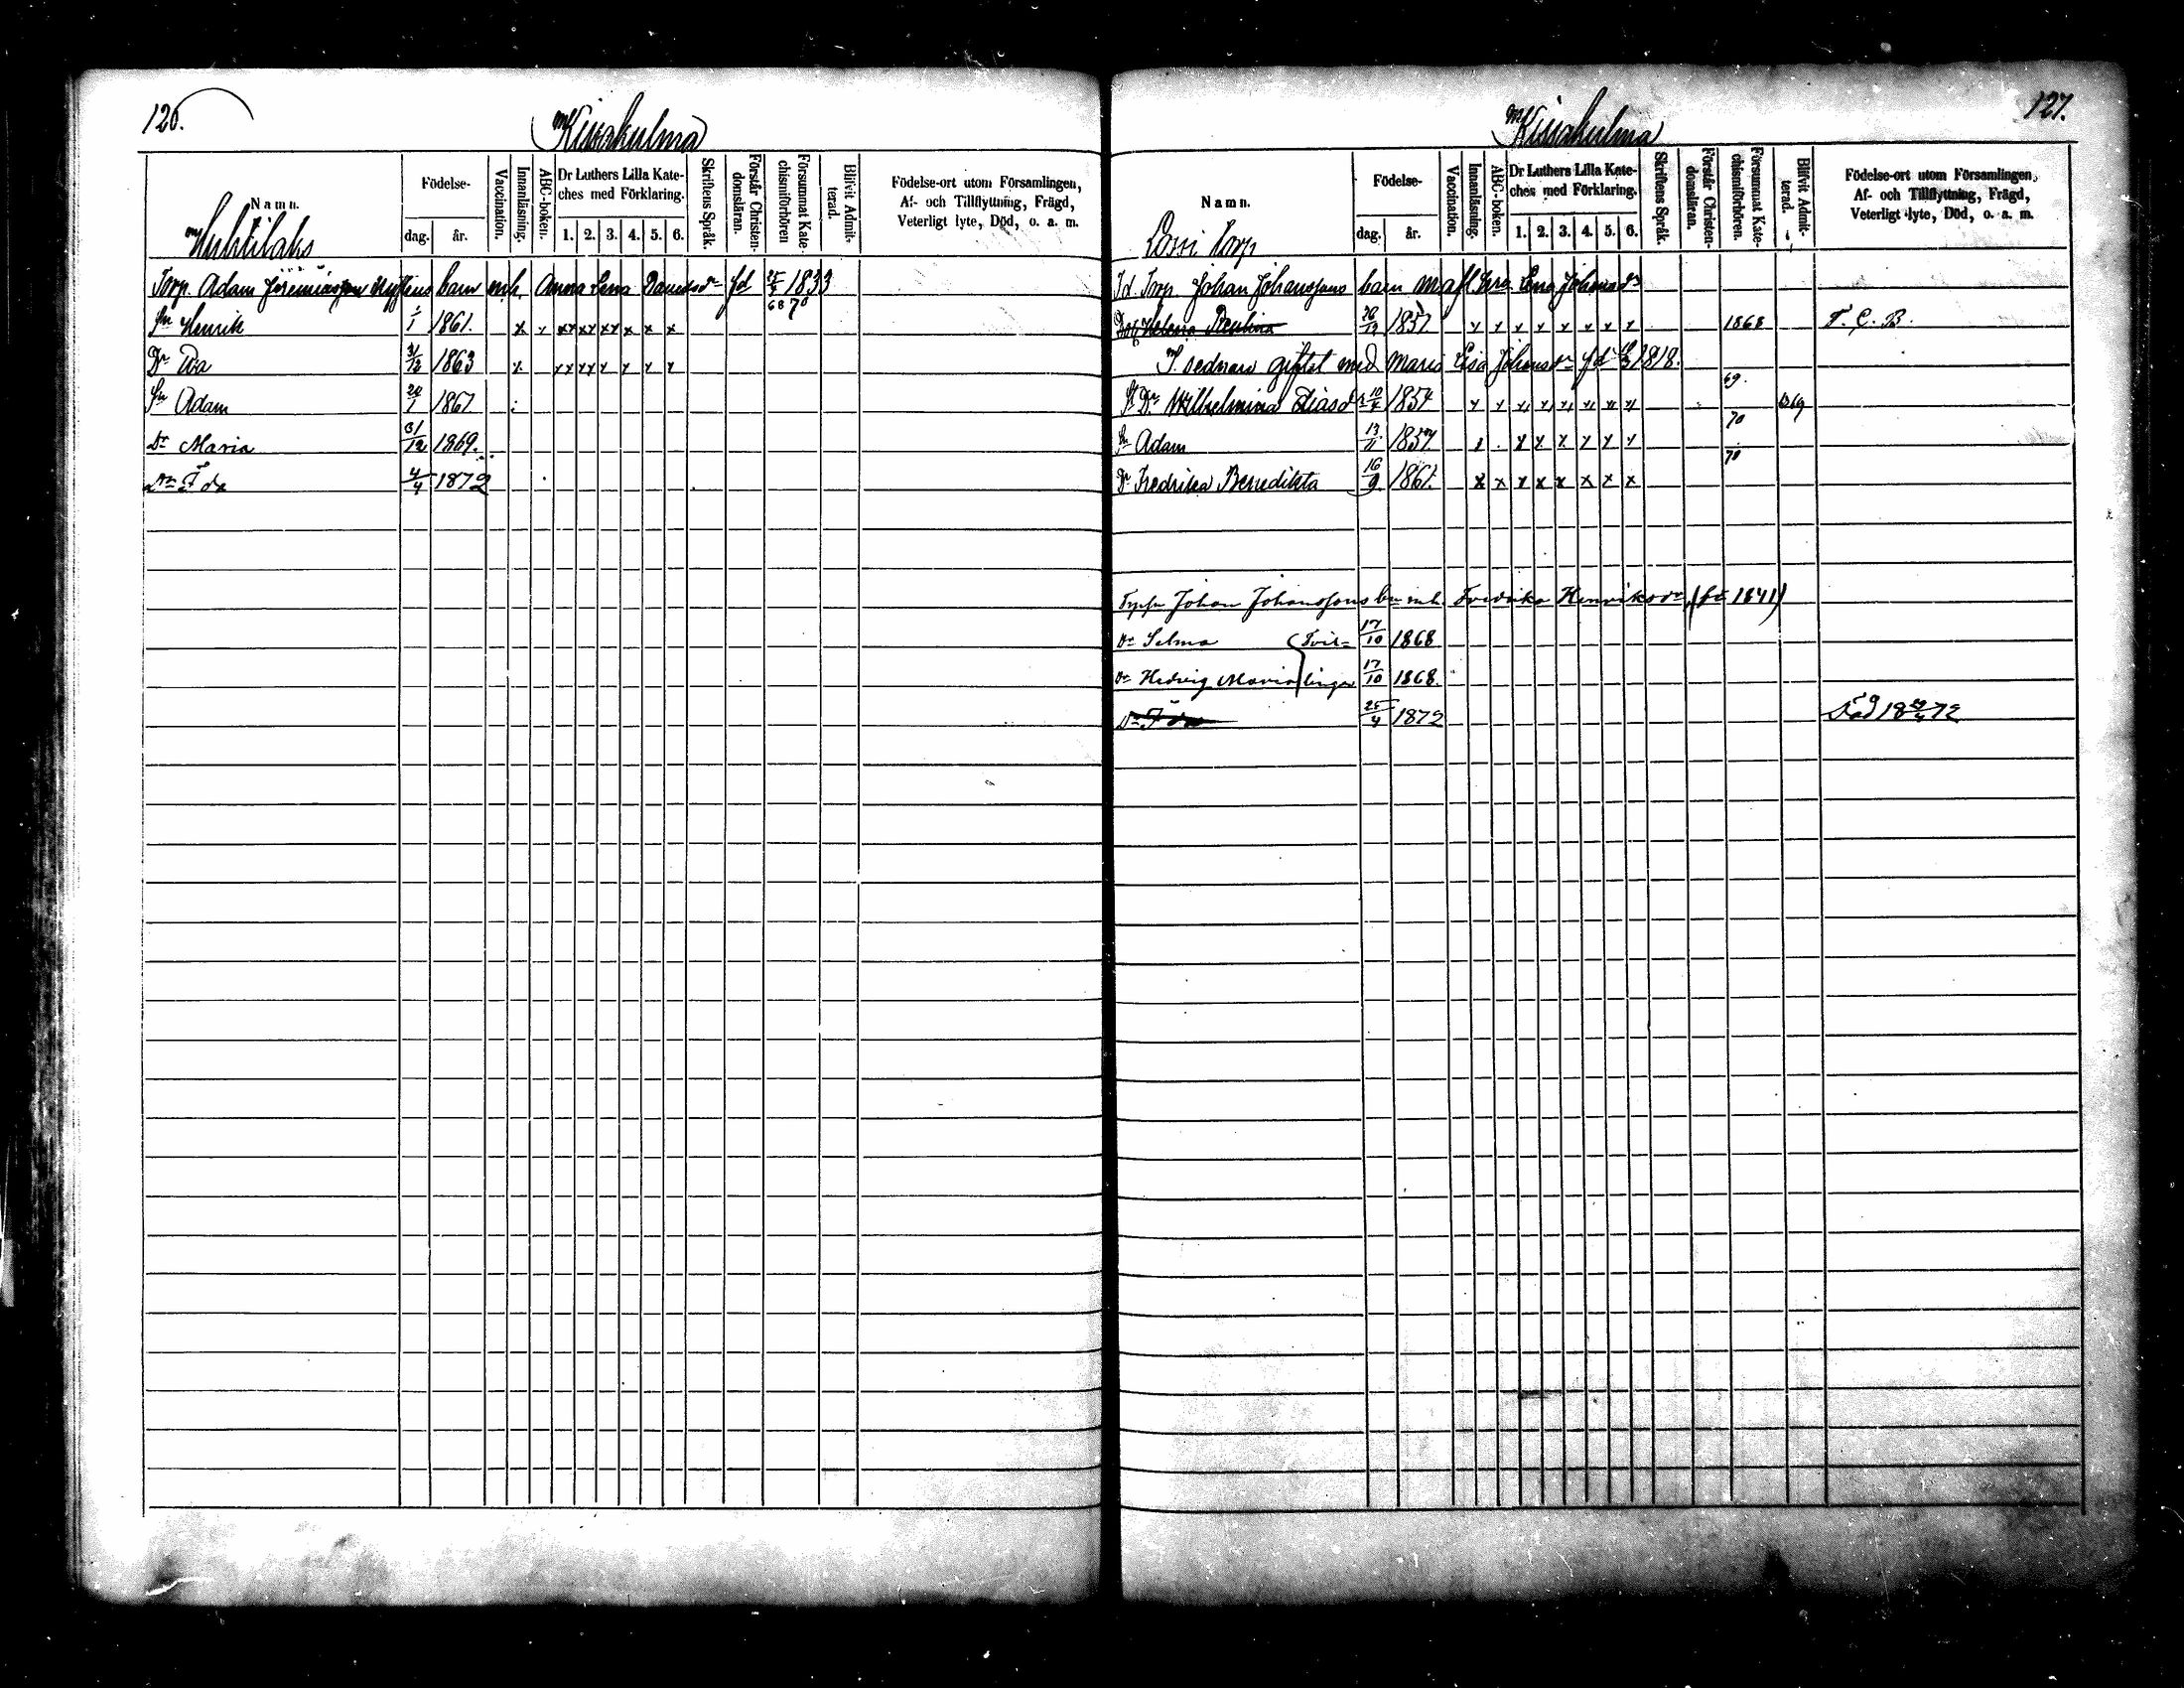 126.
Kissakulma
Namn.
Födelse-
dag. år.
Vaccination.
Innanläsning.
ABC-boken.
Dr Luthers Lilla Kate-
ches med Förklaring.
1. 2. 3. 4. 5. 6.
Skriftens Språk.
Förstår Christen-
domsläran.
Försummat Kate-
chismiförhören
Blifvit Admit-
terad.
Födelse-ort utom Församlingen,
Af- och Tillflyttning, Frägd,
Veterligt lyte, Död, o. a. m.
Torp. Adam Jeremiasson barn m. h. Anna Lena Danielsdr fd 25 1833
68 70
Sn Henrik 1/1 1861. x x xx xx xx x x x
Dr Eva 31/12 1863 x xx xx x x x x
Sn Adam 20/1 1867
Dr Maria 31/12 1869.
Dr Ida 4/4 1872
127.
Kissakulma
Namn.
Födelse-
dag. år.
Vaccination.
Innanläsning.
ABC-boken.
Dr Luthers Lilla Kate-
ches med Förklaring.
1. 2. 3. 4. 5. 6.
Skriftens Språk.
Förstår Christen-
domsläran.
Försummat Kate-
chismiförhören.
Blifvit Admit-
terad.
Födelse-ort utom Församlingen,
Af- och Tillflyttning, Frägd,
Veterligt lyte, Död, o. a. m.
Torp
Fd Torp. Johan Johanssons barn m afl Lena Johansdr
Helena 26/12 1851 x x x x x x x x 1868 F. C. B.
sednare giftet med Maria Lisa Johansdr fd 1818.
69.
St Dr Wilhelmina Eliasdr 10/4 1854 x x x x x x x x 69
70
Sn Adam 13/11 1857. x x x x x x
70
Dr Fredrika Benedikta 16/9 1861. x x x x x x x x
Johan Johanssons bn m. h. Fredrika Henriksdr (fd 1841)
Dr Selma Tvil- 17/10 1868
Dr Hedvig Maria lingar 17/10 1868.
Dr Ida 25/4 1872 Död 18 72